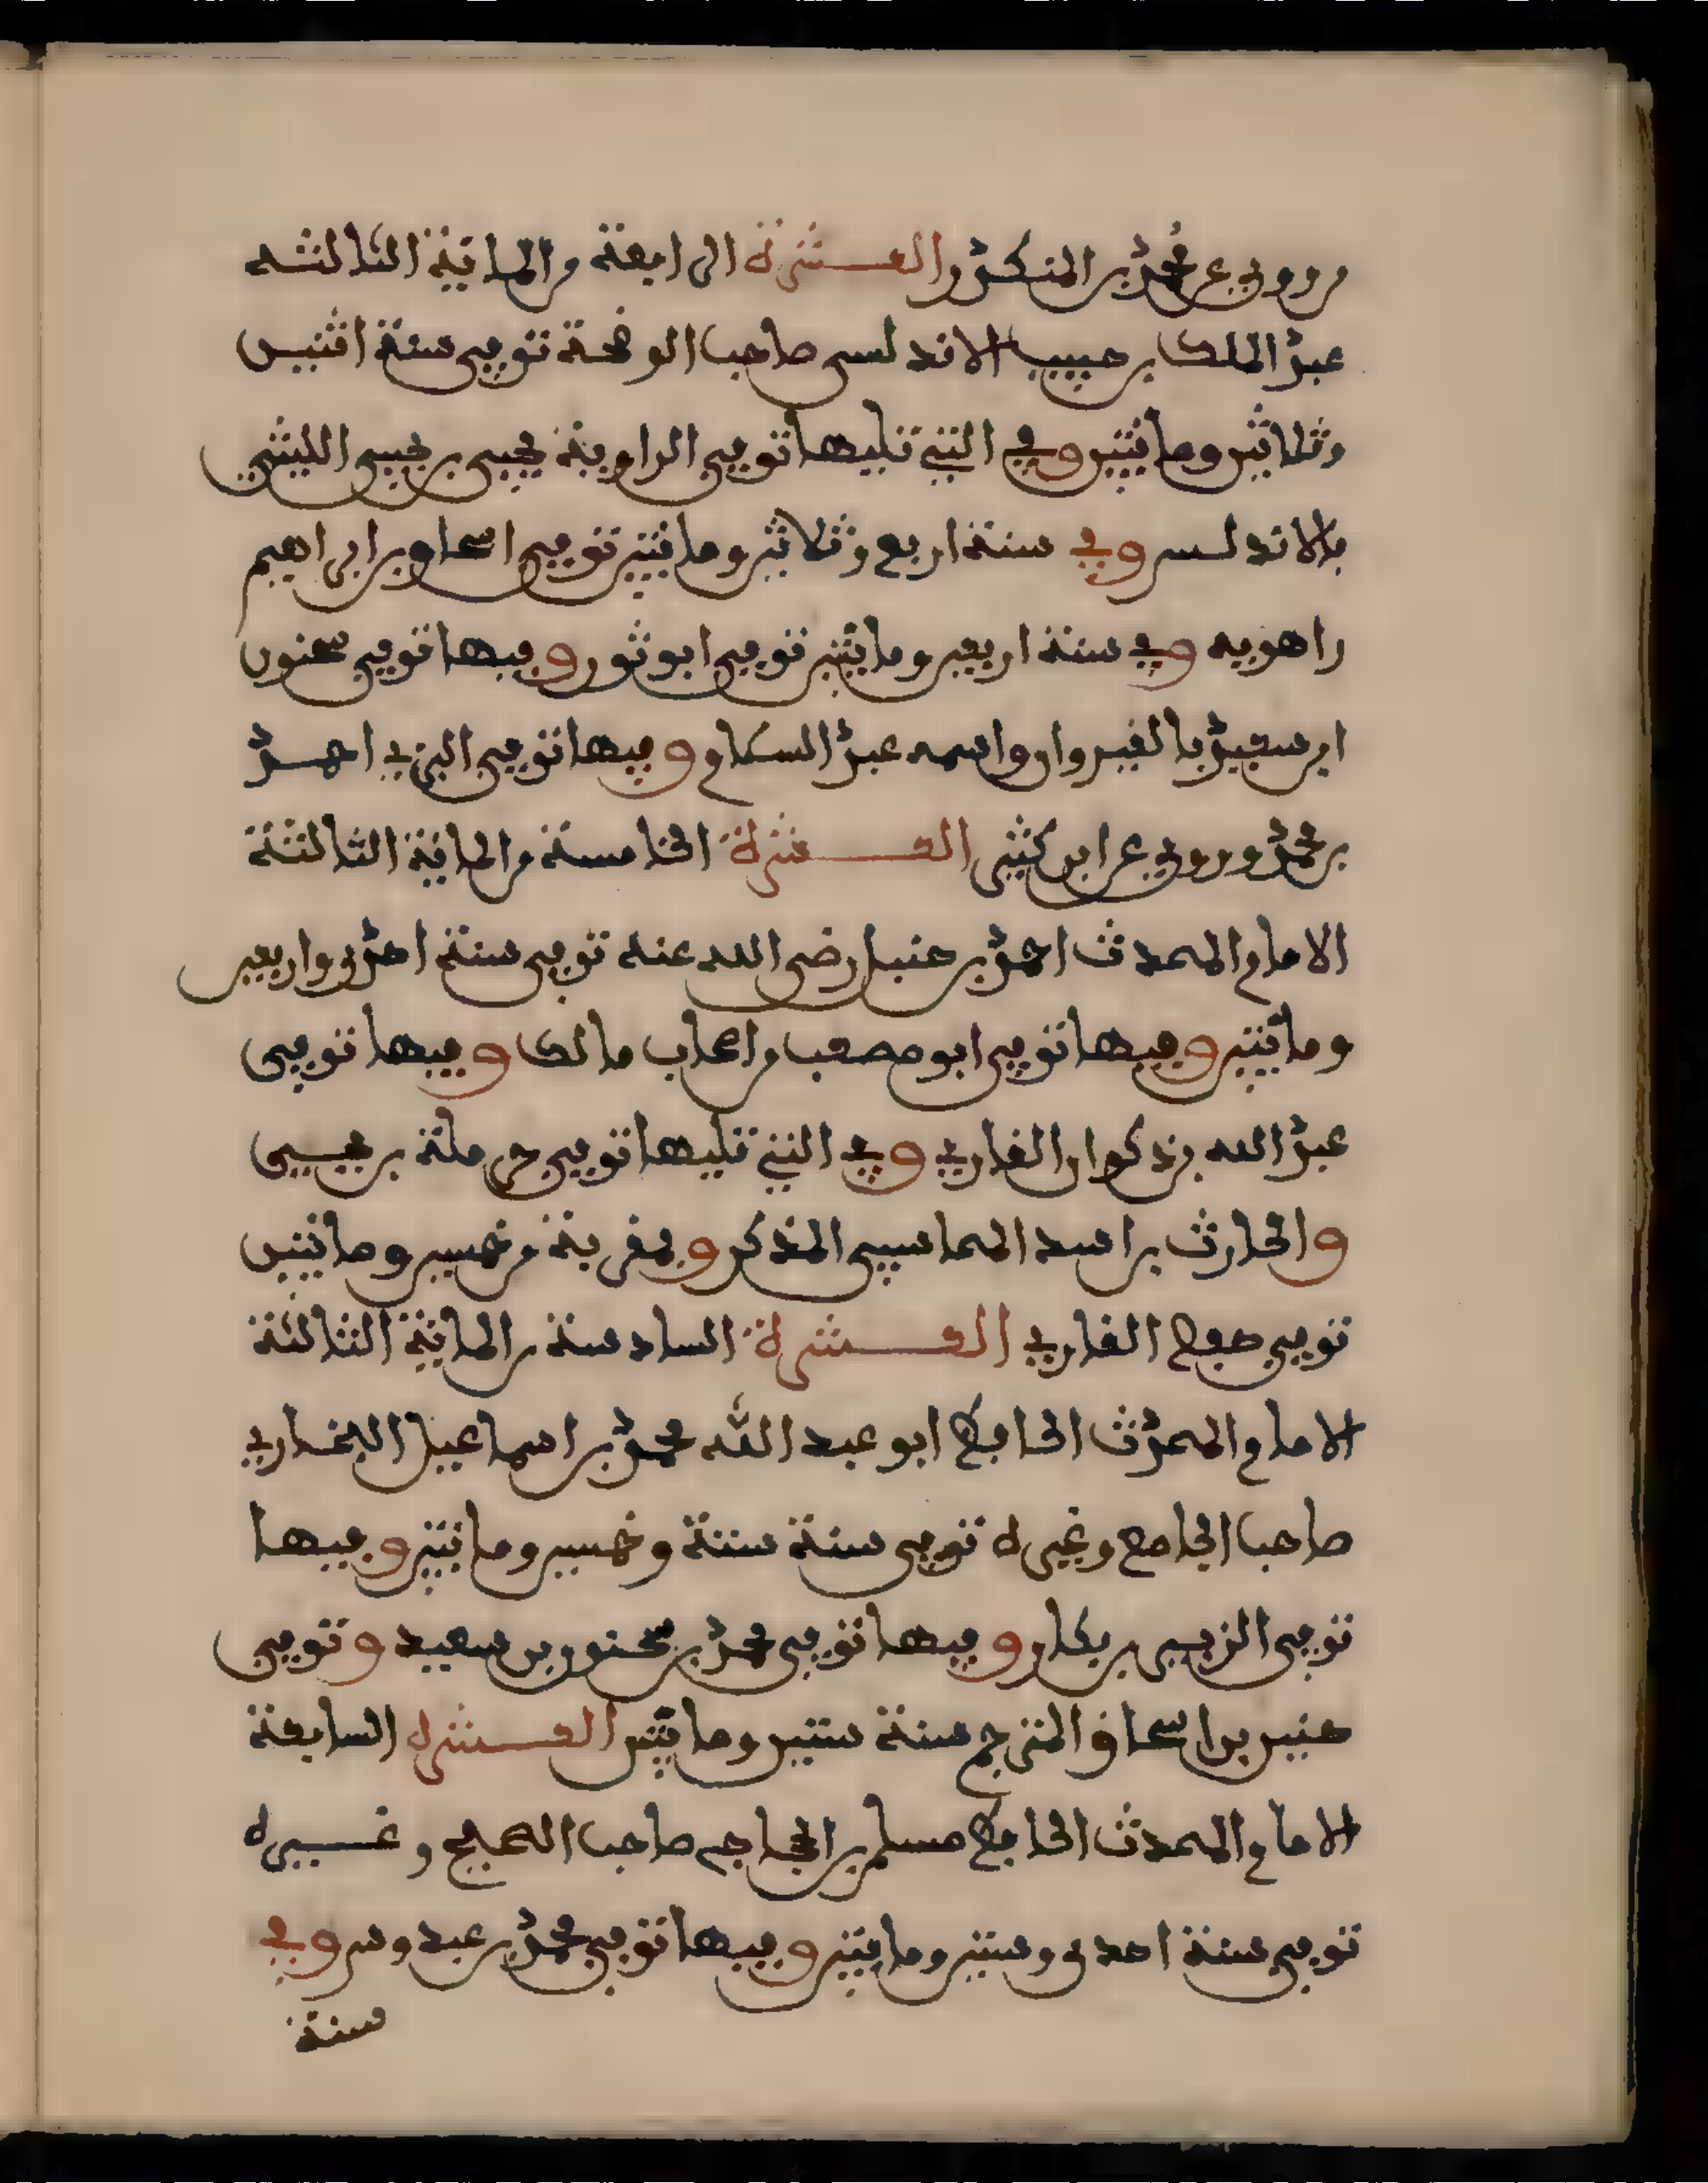 وروى عن محمد بن المنكدر العشرة الرابعة من المائة الثالثه
عبد الملك بن حبيب الاندلسي صاحب الوضحة توفي سنة اثنين
وثلاثين ومائتين وفي التي تليها توفي الراوية يحيى بن يحيى الليثي
بالاندلس وفي سنة اربع وثلاثين ومائتين توفي اسحاق بن ابراهيم
راهويه وفي سنة اربعين ومائتين توفي ابو ثور وفيها توفي سحنون
ابن سعيد بالقيروان واسمه عبد السلام وفيها توفي البزي احمد
بن محمد وروى عن ابن كثير العشرة الخامسة من المائة الثالثة
الامام المحدث احمد بن حنبل رضي الله عنه توفي سنة احدى واربعين
ومائتين وفيها توفي ابو مصعب من اصحاب مالك وفيها توفي
عبد الله بن ذكوان القاري وفي التي تليها توفي حرملة بن يحيى
والحارث بن اسد المحاسبي المذكر وبمقربة من خمسين ومائتين
توفي حفص القاري العشرة السادسة من المائة الثالثة
الامام المحدث الحافظ ابو عبد الله محمد بن اسماعيل البخاري
صاحب الجامع وغيره توفي سنة ستة وخمسين ومائتين وفيها
توفي الزبير بن بكار وفيها توفي محمد بن سحنون بن سعيد وتوفي
حنين بن اسحاق المترجم سنة ستين ومائتين العشرة السابعة
الامام المحدث الحافظ مسلم بن الحجاج صاحب الصحيح وغيره
توفي سنة احدى وستين ومائتين وفيها توفي محمد بن عبدوس وفي
سنة